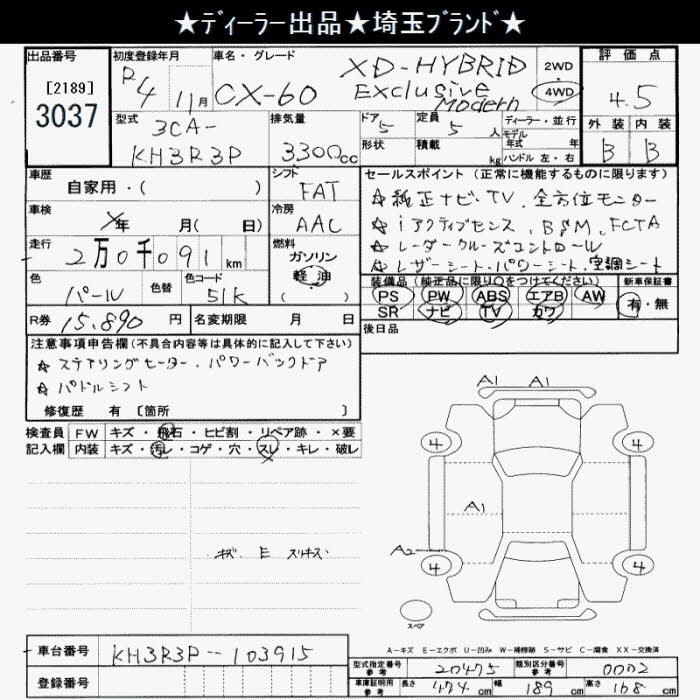 ★ディーラー出品★埼玉ブランド★
出品番号 初度登録年月 車名・グレード 評価点
[2189]
3037
R4 11月 CX-60 XD-HYBRID Exclusive Modern 2WD・4WD 4.5
型式 排気量 ドア 定員 ディーラー・並行 外装 内装
3CA-KH3R3P 3300cc 5 5人 モデル年式 年 B B
形状 積載 kg ハンドル 左・右
車歴 シフト セールスポイント（正常に機能するものに限ります）
自家用・( ) FAT
☆純正ナビ・TV、全方位モニター
車検 年 月( 日) 冷房 AAC
☆iアクティブセンス、BSM、FCTA
走行 2万0千091km 燃料 ガソリン 軽油 ( )
☆レーダークルーズコントロール
☆レザーシート・パワーシート、空調シート
色 パール 色替 色コード 51K
装備品（純正品に限り○をつけてください） 新車保証書
PS PW ABS エアB AW 有・無
SR ナビ TV カワ
R券 15,890円 名変期限 月 日
後日品
注意事項申告欄(不具合内容等は具体的に記入して下さい)
☆ステアリングヒーター、パワーバックドア
☆パドルシフト
修復歴 有 [箇所 ]
検査員 FW キズ・飛石・ヒビ割・リペア跡・×要
記入欄 内装 キズ・汚レ・コゲ・穴・スレ・キレ・破レ
A1 A1
4 4
A1
A2
4 4
キズ E スリキズ
スペア
A-キズ E-エクボ U-凹み W-補修跡 S-サビ C-腐食 XX-交換済
車台番号 KH3R3P-103915
登録番号
型式指定番号 参考 20475 類別区分番号 参考 0002
車庫証明用 参考 長さ 474cm 幅 189cm 高さ 168cm